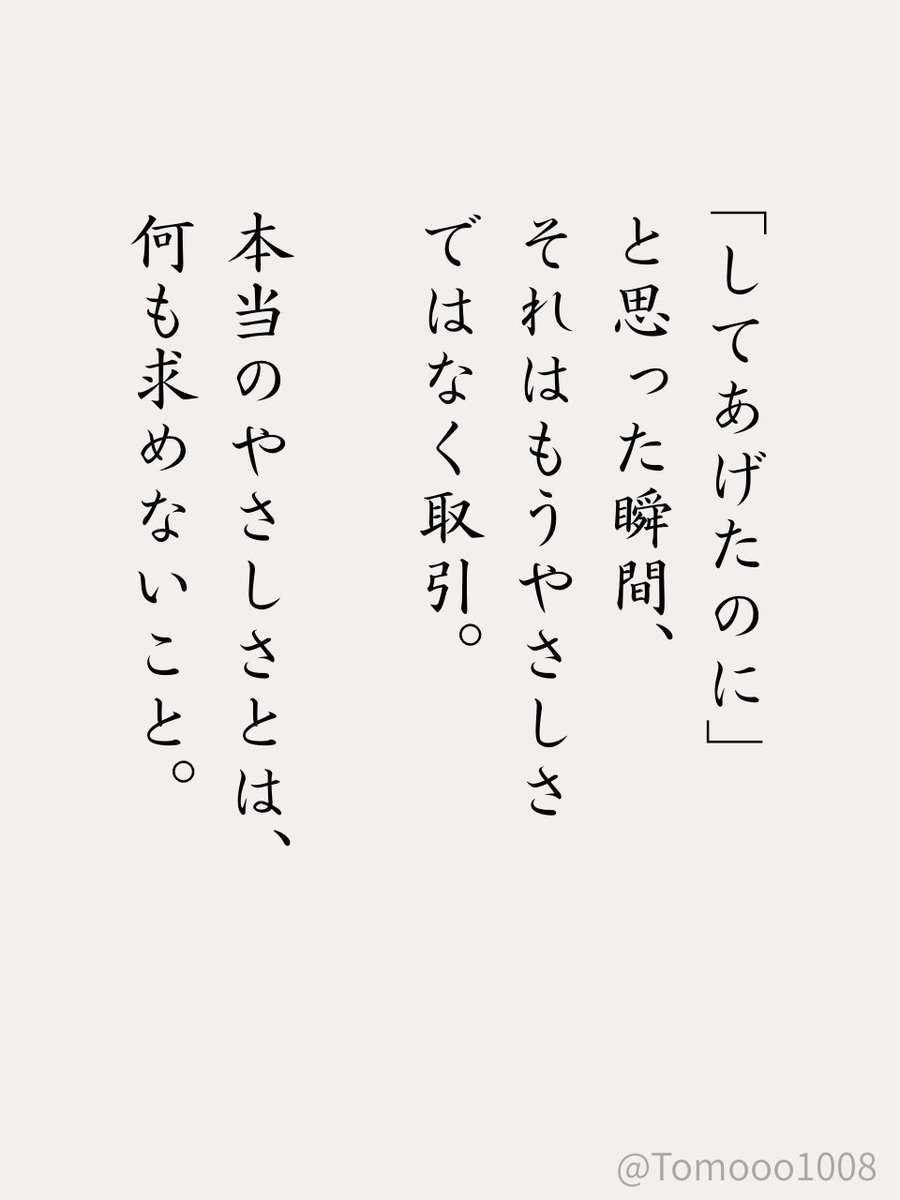 「してあげたのに」
と思った瞬間、
それはもうやさしさ
ではなく取引。
本当のやさしさとは、
何も求めないこと。
@Tomooo1008